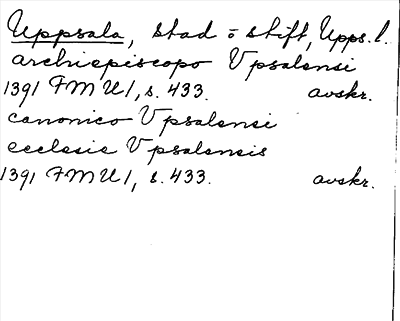 Uppsala, stad o stift, Upps. l.
archiepiscopo Vpsalensi
1391 FMU 1, s. 433. avskr.
canonico Vpsalensi
ecclesie Vpsalensis
1391 FMU 1, s. 433. avskr.